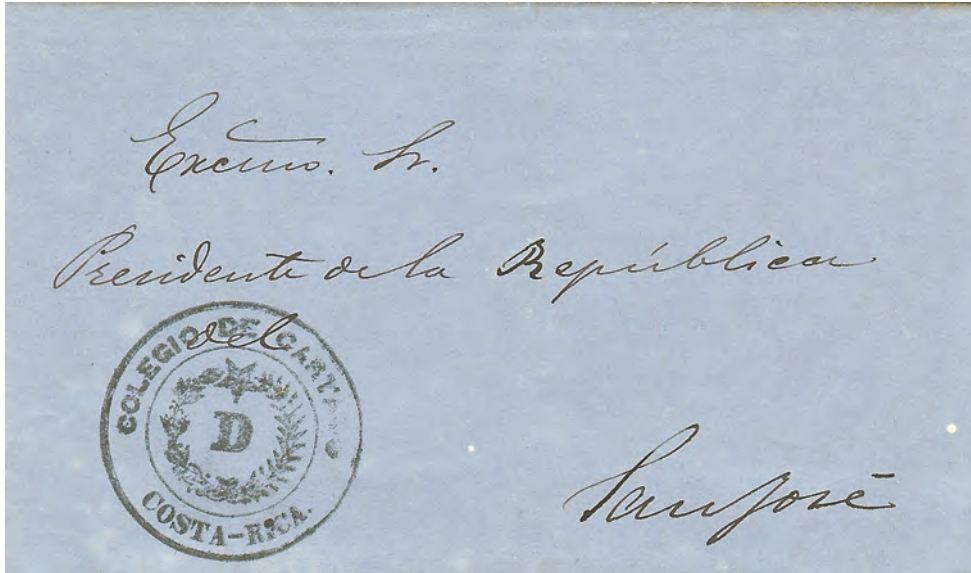 Excmo. Sr.
Presidente de la República
del
COLEGIO DE CARTAGO
D
COSTA-RICA.
San José